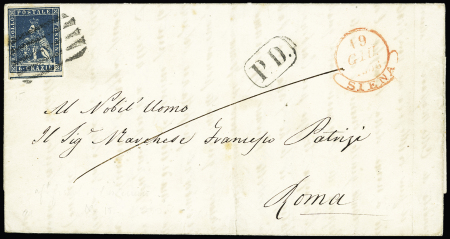 BOLLO POSTALE TOSCANO
6 CRAZIE
P.D.
19
SIENA
Al Nobil' Uomo
Il Sig.r Marchese Francesco Patrizi
Roma